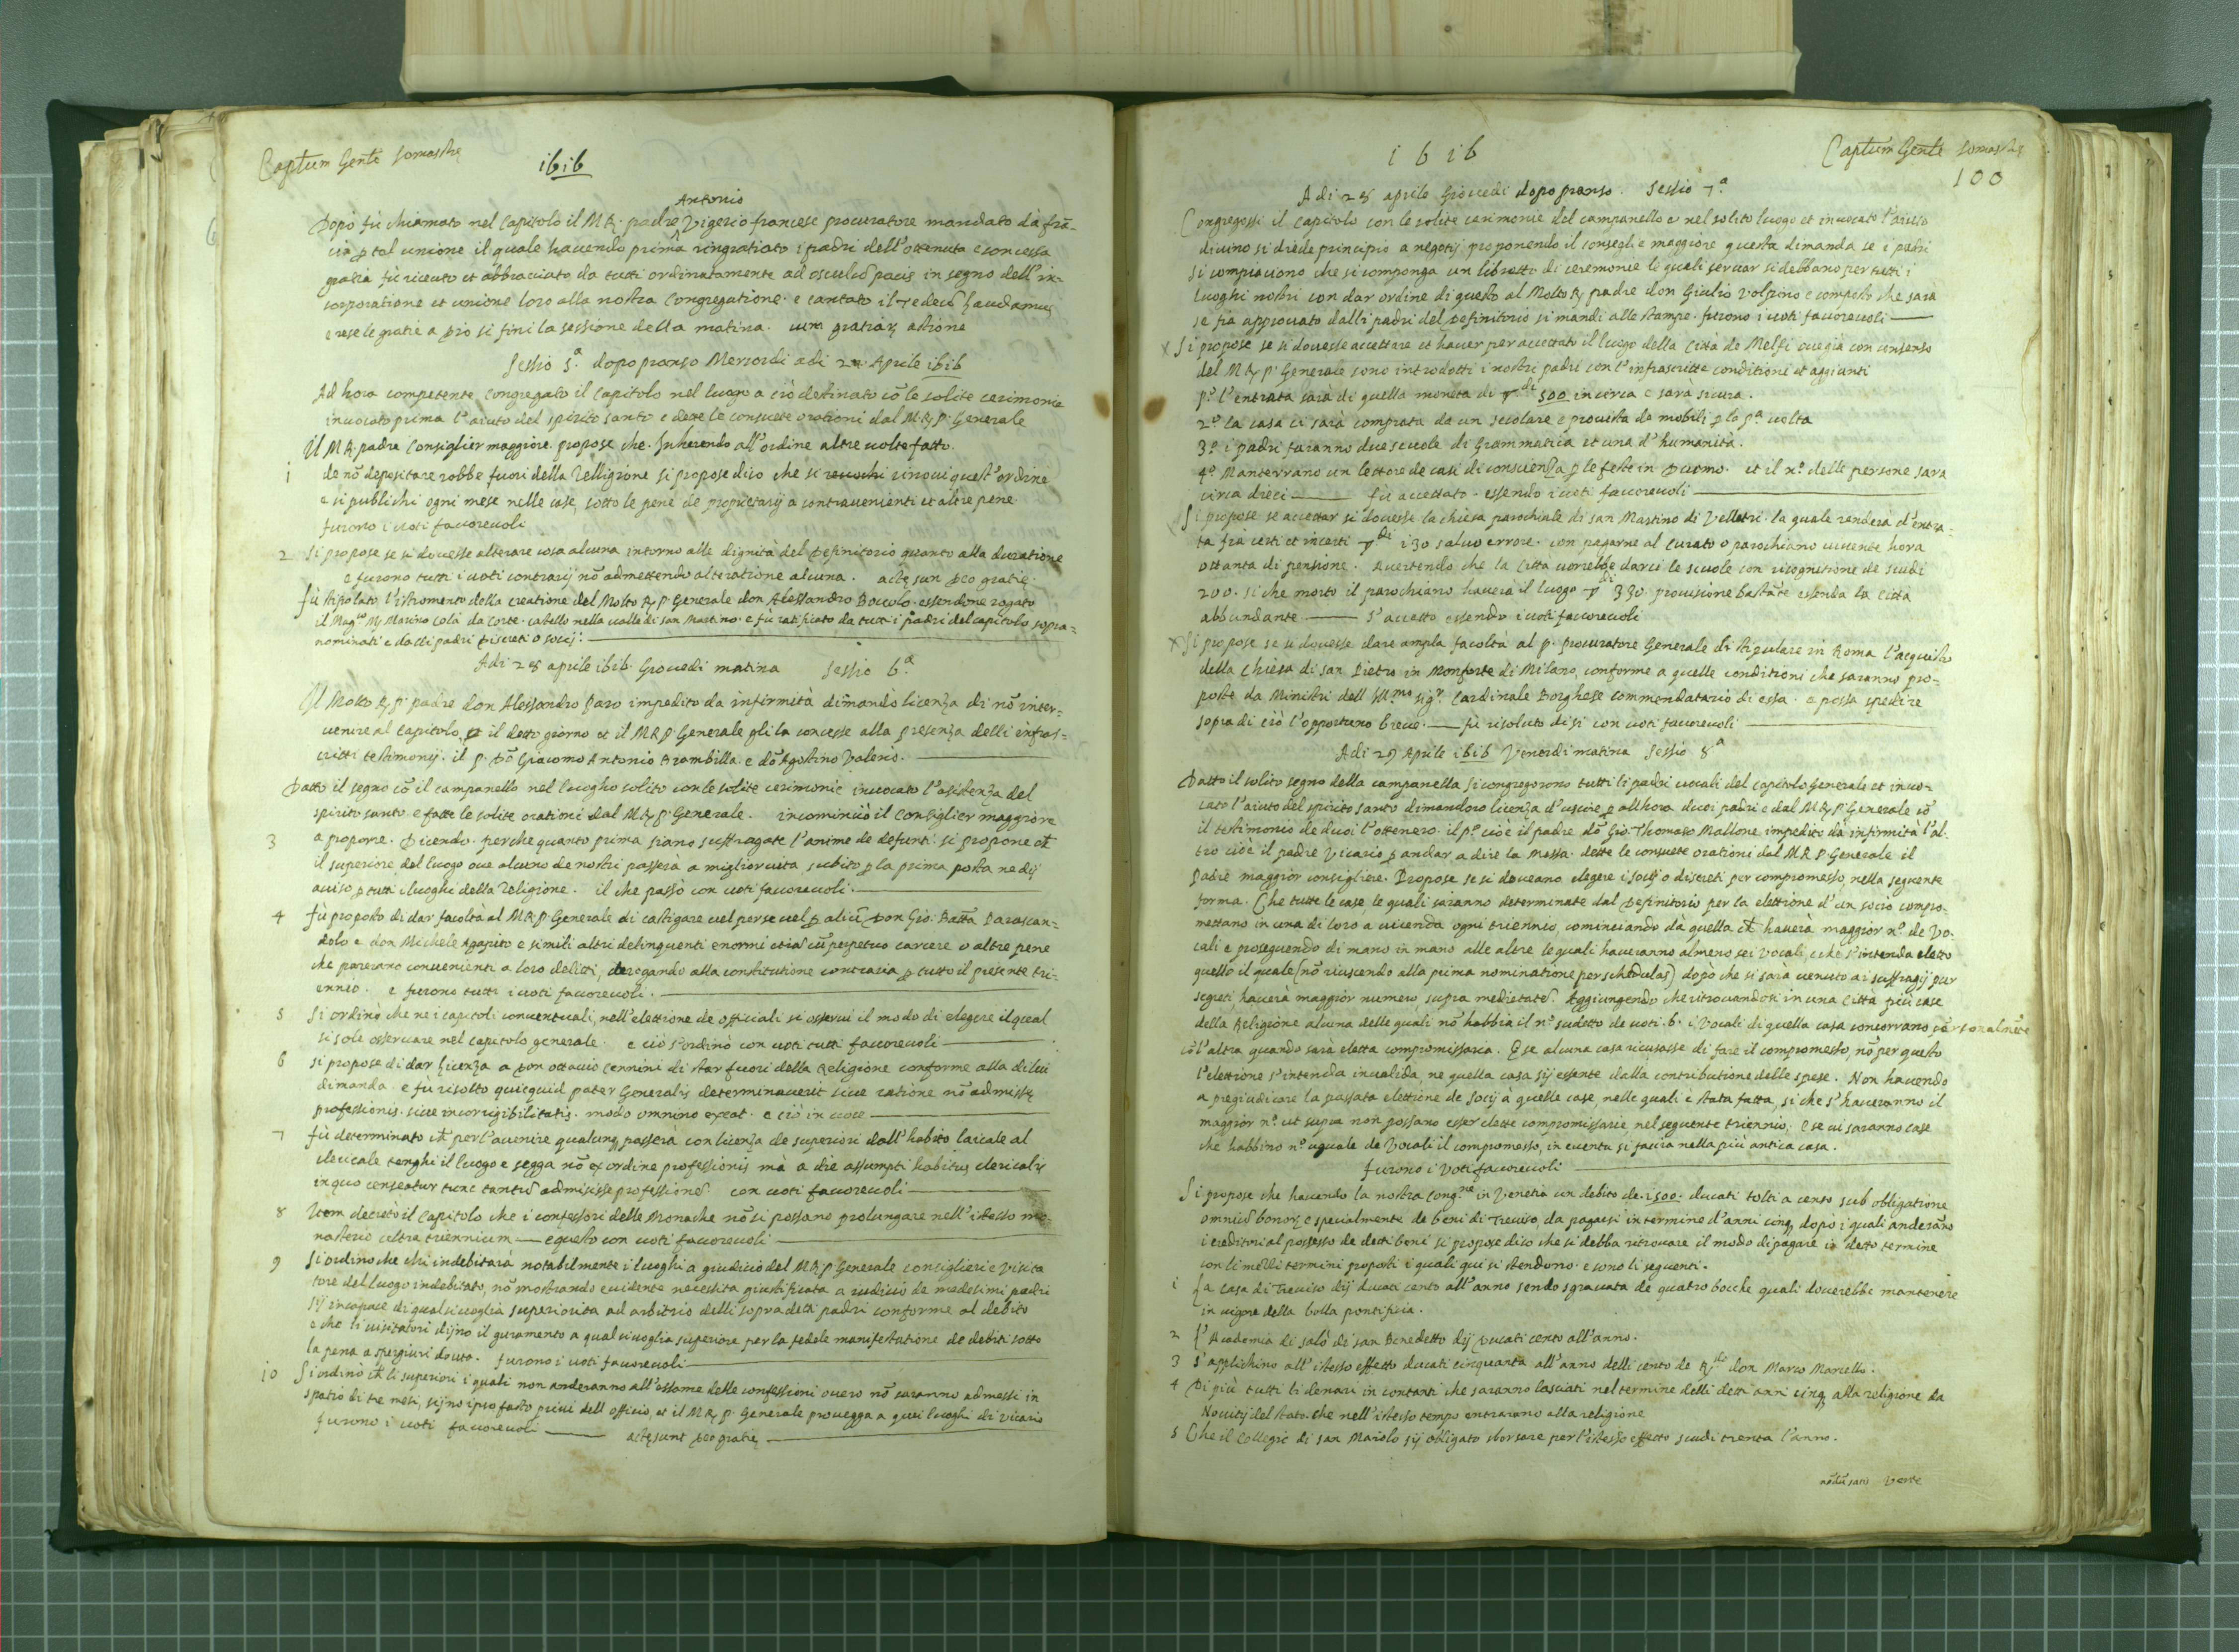 Captum Genle Somaschę
1616
Antonio
Dopò fù chiamato nel Capitolo il M R. padre Vigerio francese procuratore mandato dà frã-
cia ꝑ tal unione il quale havendo prima ringratiato i padri dell'ottenuta e concessa
gratia fù riceuto et abbracciato da tutti ordinatamente ad osculũ pacis in segno dell'in-
corporatione et unione loro alla nostra Congregatione. e cantato il Te deũ laudamus
e rese le gratie a Dio si finì la sessione della matina. cum gratiarũ actione
Sessio 5.ª dopo pranso Mercordi adi 27 Aprile 1616
Ad hora competente congregato il Capitolo nel luogo a ciò destinato cõ le solite cerimonie
invocato prima l'aiuto del spirito santo e dette le consuete orationi dal M.R.P. Generale
Il M R. padre Consiglier maggiore propose che. Inherendo all'ordine altre uolte fatto.
1 de nõ depositare robbe fuori della Relligione si propose dico che si revochi rinoui quest'ordine
e si publichi ogni mese nelle case, sotto le pene de proprietarij a contravenienti et altre pene
furono i uoti fauoreuoli
2 Si propose se si douesse alterare cosa alcuna intorno alle dignità del Definitorio quanto alla duratione
e furono tutti i uoti contrarij nõ admettendo alteratione alcuna. actę sun Deo gratię.
fù stipolato l'istromento della creatione del Molto R. P. Generale don Alessandro Boccolo. essendone rogato
il Mag.co M. Marino Colà da Corte. castello nella ualle di san Martino. e fu ratificato da tutti i padri del capitolo sopra=
nominati e dalli padri Discreti o socij:
Adi 28 aprile 1616. Giouedi matina Sessio 6.ª
Il Molto R. P. padre don Alessandro Paro impedito da infirmità dimandò licenza di nõ inter=
uenire al Capitolo, ꝑ il detto giorno et il M R P. Generale gli la concesse alla presenza delli infras=
critti testimonij. il p. Dõ Giacomo Antonio Brambilla. e dõ Agostino Valerio.
Datto il segno cõ il campanello nel luogho solito con le solite cerimonie invocato l'asistenza del
spirito santo. e fatte le solite orationi dal M R. P. Generale. incominciò il Consiglier maggiore
3 a proporre. Dicendo. perche quanto prima siano suffragate l'anime de defunti. si propone chẽ
il superiore del luogo oue alcuno de nostri passerà a miglior uita subito ꝑ la prima posta ne dij
auiso ꝑ tutti i luoghi della Religione. il che passò con uoti fauoreuoli.
4 fù proposto di dar facoltà al M R. P. Generale di castigare uel per se uel ꝑ aliũ Don Gio: Batta Parascan=
dolo e don Michele Agapito e simili altri delinquenti enormi etiã cũ perpetuo carcere o altre pene
che pareranno convenienti a loro delitti, derogando alla constitutione contraria ꝑ tutto il presente tri-
ennio. e furono tutti i uoti fauoreuoli.
5 Si ordinò che ne i capitoli conuentuali, nell'elettione de officiali si osserui il modo di elegere il qual
si sole osseruare nel capitolo generale. e ciò s'ordinò con uoti tutti fauoreuoli
6 si propose di dar licenza a Don ottauio Cennini di star fuori della Religione conforme alla di lui
dimanda. e fù risolto quicquid pater Generalis determinaverit siue ratione nõ admissę
professionis. siue incorrigibilitatis. modo omnino exeat. e ciò in uoce
7 fù determinato chẽ per l'auenire qualunq passerà con licenza de superiori dall'habito laicale al
clericale tenghi il luogo e segga nõ ex ordine professionis mà a die assumpti habitus clericalis
in quo censeatur tunc tantũ admisisse professionẽ. con uoti fauoreuoli
8 Item decretò il Capitolo che i confessori delle Monache nõ si possano prolungare nell'istesso mo-
nasterio ultra triennium — e questo con uoti fauoreuoli
9 Si ordinò che chi indebitarà notabilmente i luoghi a giudicio del M R. P. Generale consiglieri e Visita
tore del luogo indebitato, nõ mostrando euidente necessita giustificata a iudicio de medesimi padri
sij incapace di qual siuoglia superiorità ad arbitrio delli sopra detti padri conforme al debito
e che li uisitatori dijno il guramento a qual siuoglia superiore per la fedele manifestatione de debiti sotto
la pena a spergiuri douta. furono i uoti fauoreuoli
10 Si ordinò chẽ li superiori i quali non anderanno all'essame delle confessioni ouero nõ saranno admessi in
spatio di tre mesi, sijno ipso facto priui dell officio, et il M R. P. Generale prouegga a quei luoghi di Vicario
furono i uoti fauoreuoli — actę sunt Deo gratię
1616
Captum Genle Somaschę
100
Adi 28 aprile Giouedi dopo pranso. Sessio 7.ª
Congregossi il Capitolo con le solite cerimonie del campanello e nel solito luogo et inuocato l'aiuto
diuino si diede principio a negotij proponendo il consegliere maggiore questa dimanda se i padri
si compiacciono che si componga un libretto di ceremonie le quali seruar si debbano per tutti i
luoghi nostri con dar ordine di questo al Molto R. padre don Giulio Volpino e composto che sarà
se fia approuato dalli padri del Definitorio si mandi alle stampe. furono i uoti fauoreuoli
x Si propose se si douesse accettare et hauer per accettato il luogo della Città de Melfi oue già con consenso
del M R. P. Generale sono introdotti i nostri padri con l'infrascritte conditioni et aggionti
p.º l'entrata sarà di quella moneta di di 500 incirca e sarà sicura.
2.º la casa ci sarà comprata da un secolare e prouista de mobili ꝑ la p.ª uolta
3.º i padri faranno due scuole di Grammatica et una d'humanità.
4.º Manterrano un lettore de casi di conscienza ꝑ le feste in Duomo. et il n.º delle persone sara
circa dieci — fù accettato. essendo i uoti fauoreuoli
Si propose se accettar si douesse la chiesa parochiale di san Martino di Velletri. la quale renderà d'entra=
ta fra certi et incerti di 130 saluo errore. con pagarne al Curato o parochiano uiuente hora
ottanta di pensione. Auertendo che la Città uorrebbe darci le scuole con ricognitione de scudi
200. si che morto il parochiano hauerà il luogo di 330 prouisione bastãte essendo la Città
abbundante — s'accettò essendo i uoti fauoreuoli
x Si propose se si douesse dare ampla facoltà al p. Procuratore Generale di stipulare in Roma l'acquisto
della Chiesa di san Pietro in Monforte di Milano, conforme a quelle conditioni che saranno pro-
poste da Ministri dell Ill.mo Sig.r Cardinale Borghese commendatario di essa. e possa spedire
sopra di ciò l'opportuno breue. — fù risoluto di si con uoti fauoreuoli
Adi 29 Aprile 1616 Venerdi matina Sessio 8ª
Datto il solito segno della campanella si congregorono tutti li padri uocali del capitolo Generale et inuo-
cato l'aiuto del spirito santo dimandoro licenza d'uscire ꝑ allhora duoi padri e dal M R. P. Generale cõ
il testimonio de duoi l'ottenero. il p.º cioè il padre dõ Gio. Thomaso Mallone impedito dà infirmità l'al-
tro cioè il padre Vicario ꝑ andar a dire la Messa. dette le consuete orationi dal M.R.P. Generale il
padre maggior consigliere. Propose se si doueano elegere i socij o discreti per compromesso nella seguente
forma. Che tutte le case, le quali saranno determinate dal Definitorio per la elettione d'un socio compro-
mettano in una di loro a uicenda ogni triennio, cominciando dà quella chẽ hauerà maggior n.º de Vo-
cali e proseguendo di mano in mano alle altre le quali haueranno almeno sei Vocali, e che s'intenda eletto
quello il quale (nõ riuscendo alla prima nominatione per schedulas) dopò che si sarà uenuto ai suffragij pur
segreti hauerà maggior numero supra medietatẽ. Aggiungendo che ritrouandosi in una Città più case
della Religione alcuna delle quali nõ habbia il n.º sudetto de uoti. 6. i Vocali di quella casa concorrano personalmẽte
cõ l'altra quando sarà eletta compromissaria. E se alcuna casa ricusasse di fare il compromesso, nõ per questo
l'elettione s'intenda inualida, ne quella casa sij essente dalla contributione delle spese. Non hauendo
a pregiudicare la passata elettione de Socij à quelle case, nelle quali è stata fatta, si che s'haueranno il
maggior n.º ut supra non possano esser elette compromissarie nel seguente triennio; E se ui saranno case
che habbino n.º uguale de Vocali il compromesso, in euentu si faccia nella più antica casa.
furono i Voti fauoreuoli
Si propose che hauendo la nostra Cong.ne in Venetia un debito de. 1500. ducati tolti a censo sub obligatione
omniũ bonorũ e specialmente de beni di Treuiso, da pagarsi in termine d'anni cinq, dopo i quali anderãno
i creditori al possesso de detti beni si propose dico che si debba ritrouare il modo di pagare in detto termine
con li mezzi termini proposti i quali qui si stendono e sono li seguenti.
1 La casa di Treuiso dij ducati cento all'anno sendo sgrauata de quatro bocche quali douerebbe mantenere
in uigore della bolla pontificia.
2 l'Academia di salò di san Benedetto dij Ducati cento all'anno.
3 s'applichino all'istesso effetto ducati cinquanta all'anno delli cento de R.do don Marco Marcello.
4 Di più tutti li denari in contanti che saranno lasciati nel termine delli detti anni cinq alla religione da
Nouitij del stato. che nell'istesso tempo entrarano alla religione
5 Che il Collegio di san Maiolo sij obligato sborsare per l'istesso effetto scudi trenta l'anno.
Verte